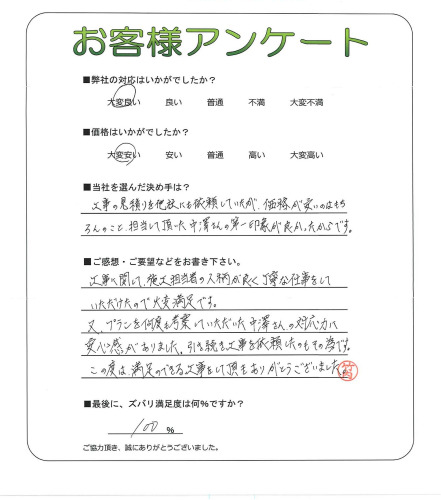 お客様アンケート
■弊社の対応はいかがでしたか？
大変良い 良い 普通 不満 大変不満
■価格はいかがでしたか？
大変安い 安い 普通 高い 大変高い
■当社を選んだ決め手は？
工事の見積りを他社にも依頼していたが、価格が安いのはもち
ろんのこと、担当して頂いた中澤さんの第一印象が良かったからです。
■ご感想・ご要望などをお書き下さい。
工事に関して、施工担当者の人柄が良く丁寧な仕事をして
いただけたので大変満足です。
又、プランを何度も考案していただいた中澤さんの対応力に
安心感がありました。引き続き工事を依頼したのもその為です。
この度は、満足のできる工事をして頂きありがとうございました。
■最後に、ズバリ満足度は何%ですか？
100 %
ご協力頂き、誠にありがとうございました。